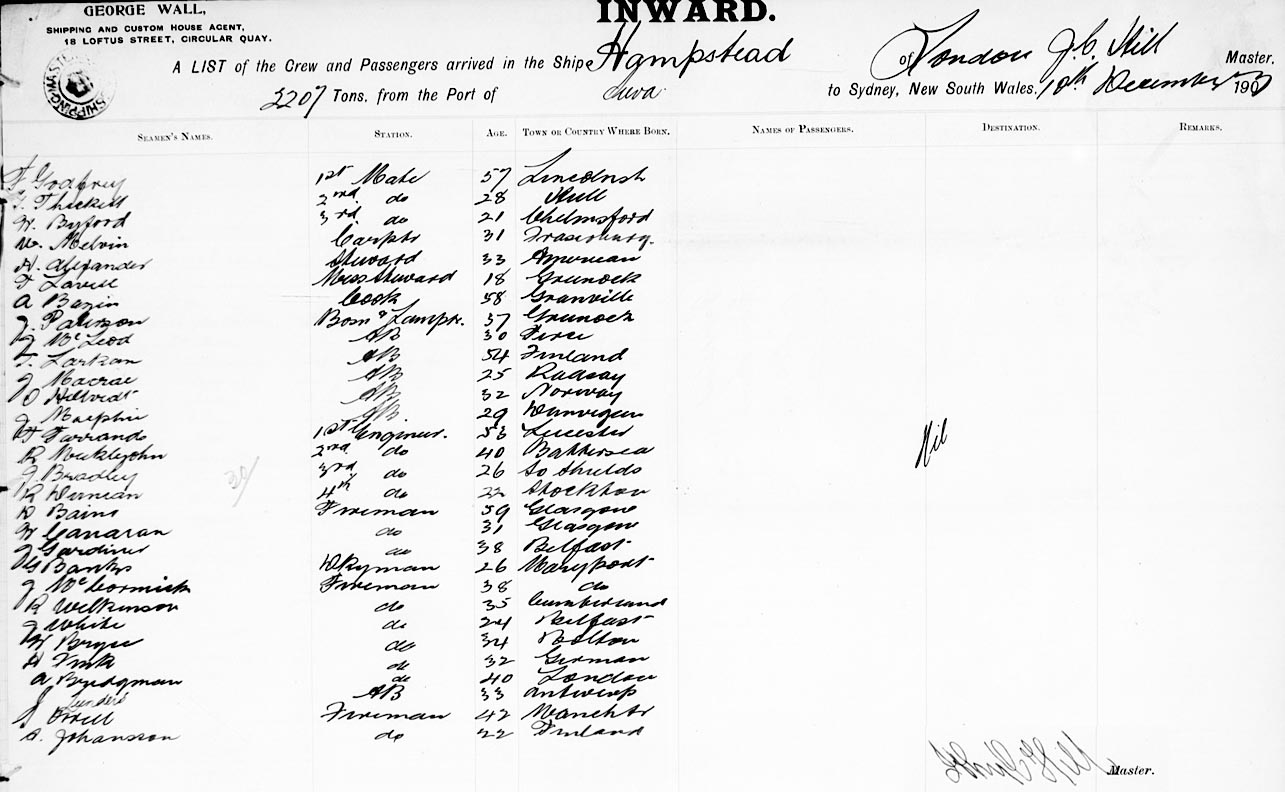 GEORGE WALL,
SHIPPING AND CUSTOM HOUSE AGENT,
18 LOFTUS STREET, CIRCULAR QUAY.
INWARD.
A LIST of the Crew and Passengers arrived in the Ship Hampstead of London J. C. Hill Master,
2207 Tons, from the Port of Suva to Sydney, New South Wales, 10th December 190
SEAMEN'S NAMES. STATION. AGE. TOWN OR COUNTRY WHERE BORN. NAMES OF PASSENGERS. DESTINATION. REMARKS.
F Godfrey 1st Mate 57 Lincolnsh
T. Thickett 2nd do 28 Hull
W. Byford 3rd do 21 Chelmsford
W. Melvin Carptr 31 Fraserburg.
A. Alexander Steward 33 American
F Lavell Mess Steward 18 Greenock
A Bazin Cook 58 Granville
J. Paterson Bosn & Lamptr. 37 Greenock
J McLeod AB 30 Tiree
T. Larkan AB 54 Finland
J Macrae AB 25 Raasay
O Hiltvedt AB 32 Norway
J Macphie AB. 29 Dunvegan
F Farrands 1st Engineer. 53 Leicester
R Micklejohn 2nd do 40 Battersea
J Bradley 3rd do 26 So Shields
R Duncan 4th do 22 Stockton
D Bains Fireman 59 Glasgow
W Canavan do 31 Glasgow
J Gardiner do 38 Belfast
G Banks Dkyman 26 Maryport
J McCormick Fireman 38 do
R Wilkinson do 35 Cumberland
J White do 24 Belfast
W Bryce do 34 Bolton
H Fink do 32 German
A Bridgman do 40 London
J Lunders AB 33 Antwerp
J Orrell Fireman 42 Manchtr
A. Johansson do 22 Finland
Nil
30/
John C Hill Master.